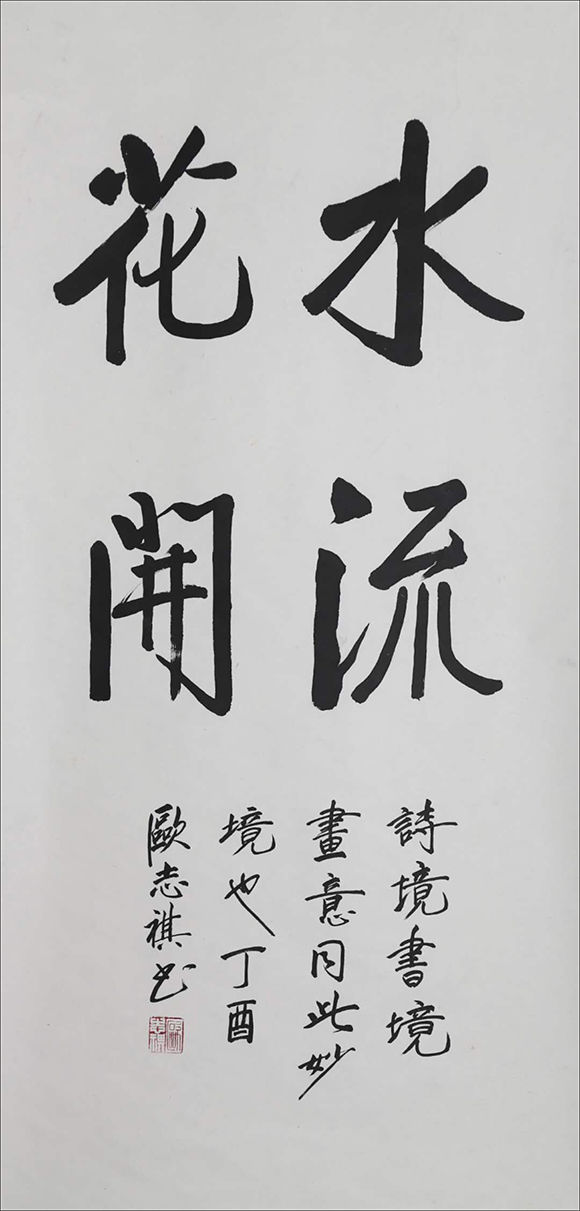 水流
花開
詩境書境
畫意同此妙
境也丁酉
歐志祺书